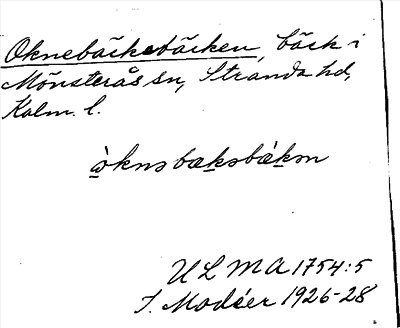 Oknebäcksbäcken, bäck i
Mönsterås sn, Stranda hd,
Kalm. l.
ò̱knsbæḵsbæ̀ḵsn
ULMA 1754:5
I. Modéer 1926-28